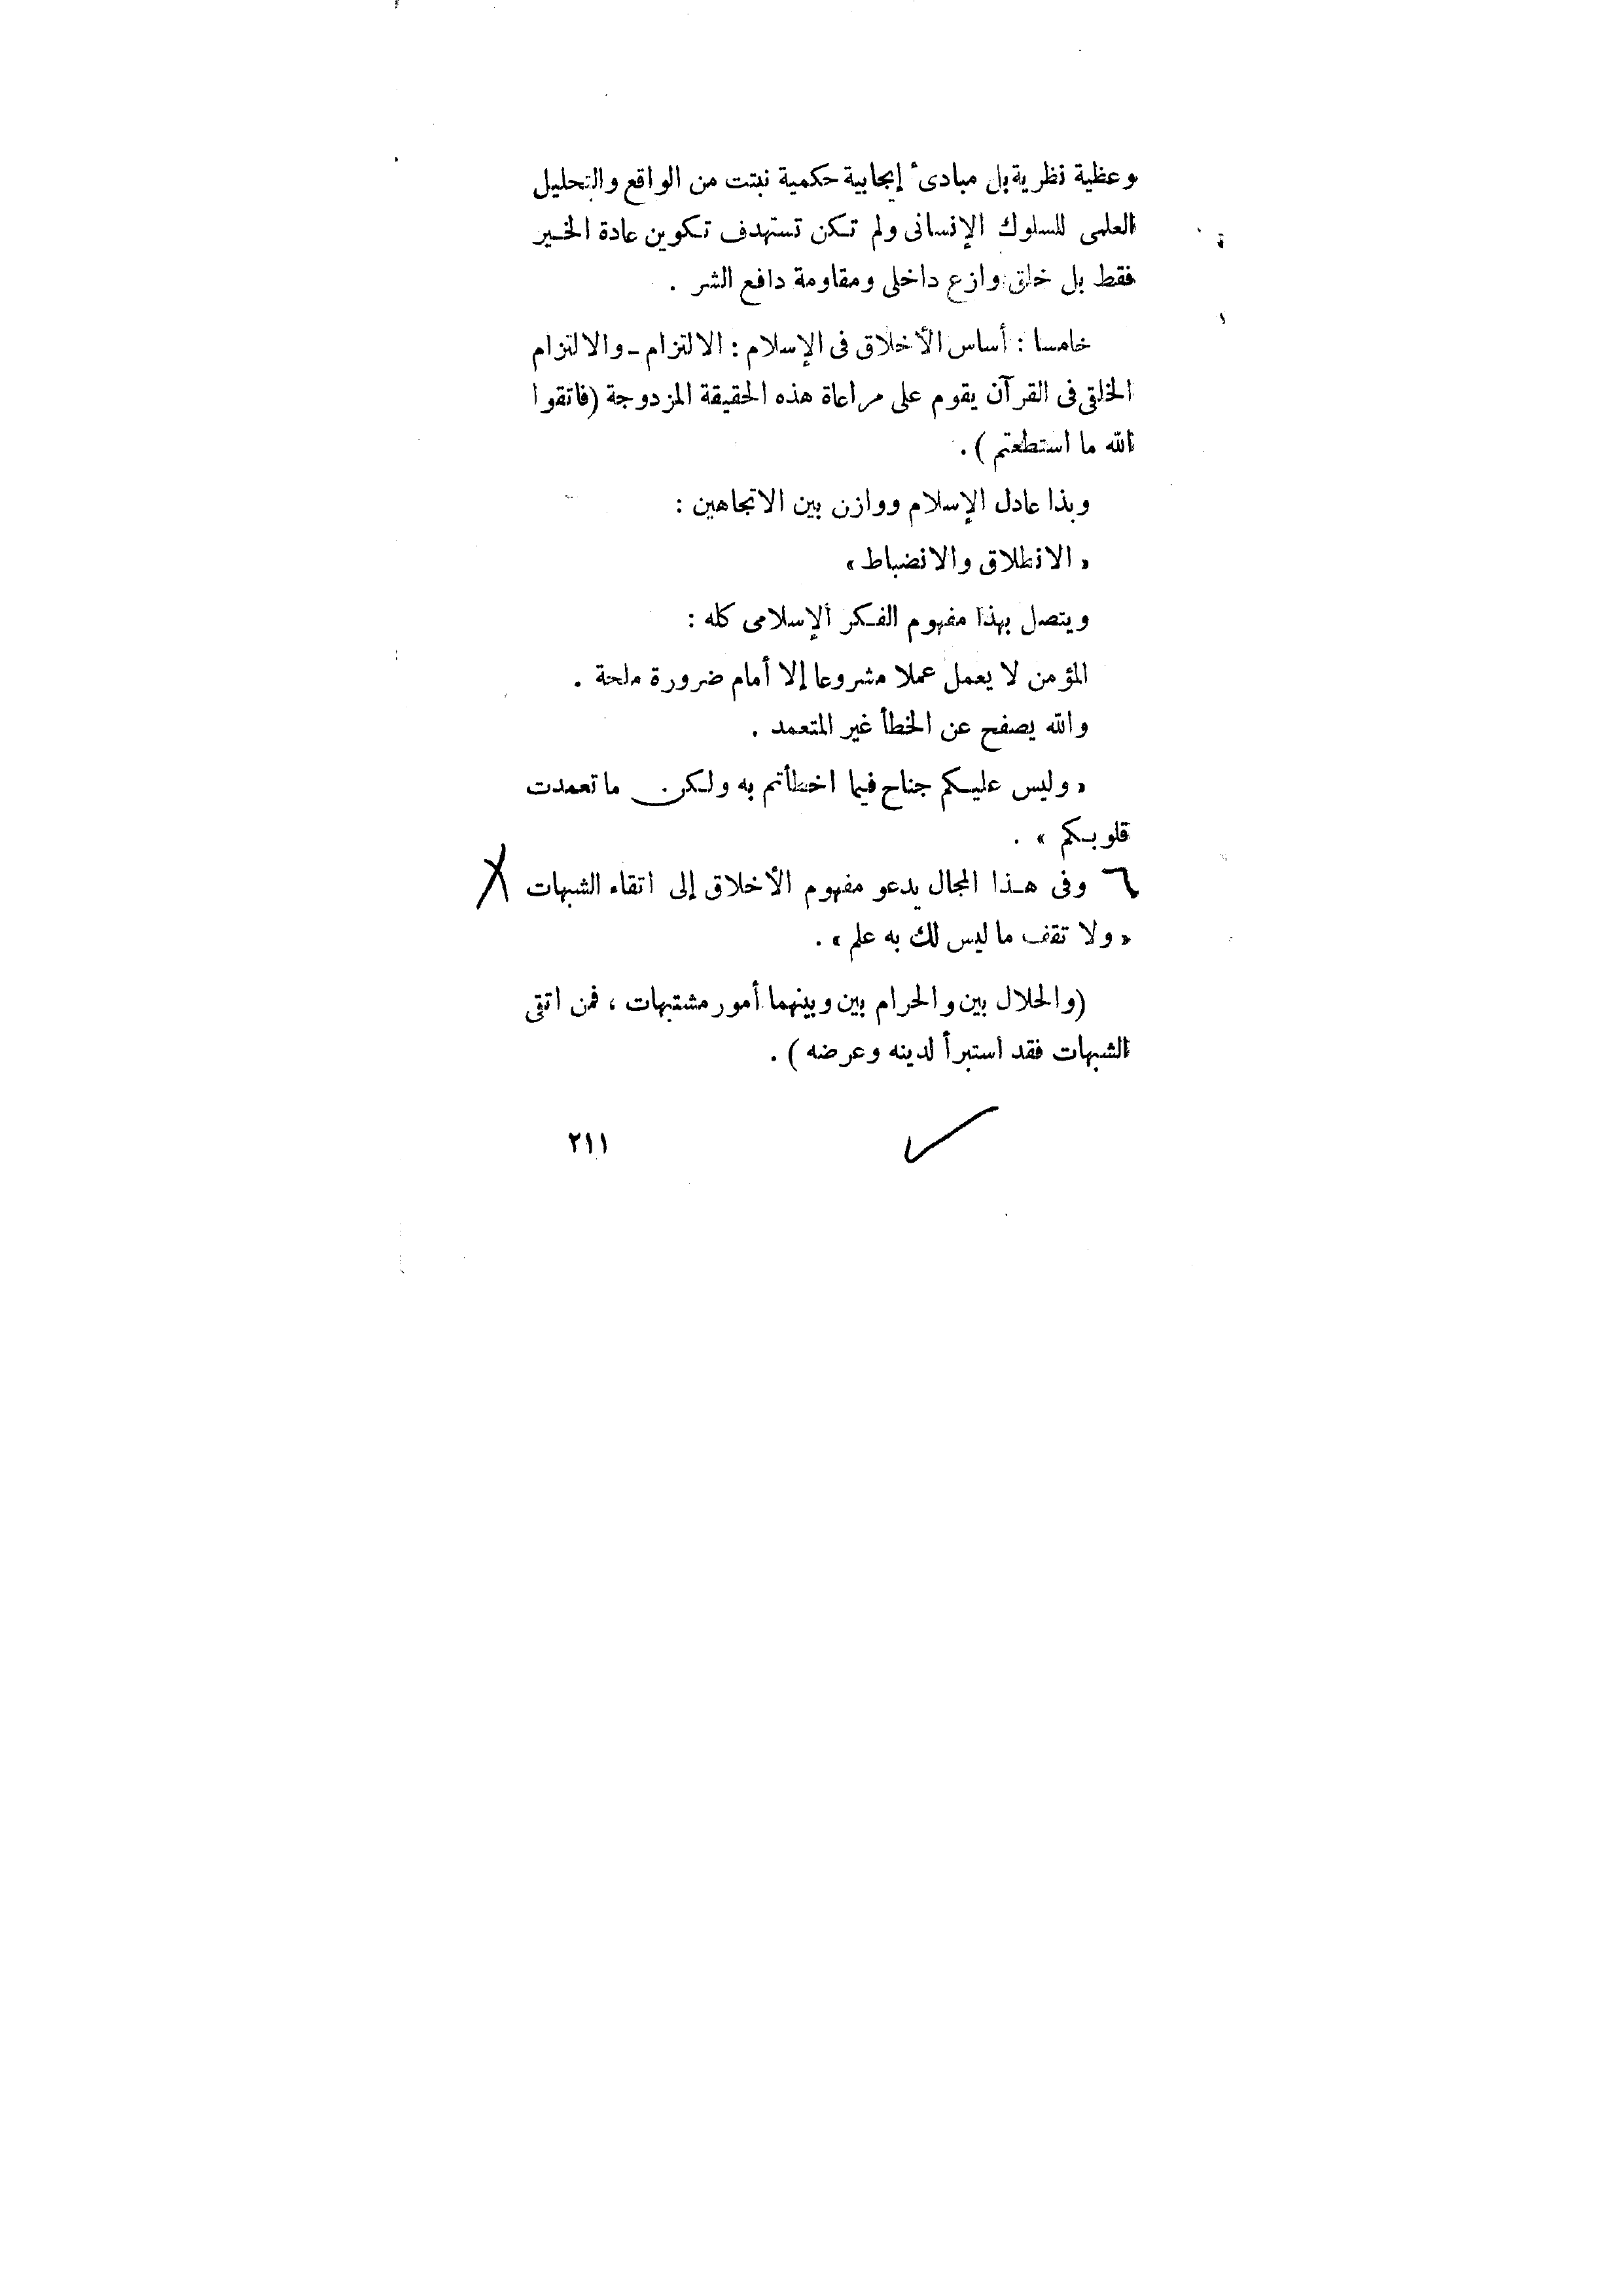 وعظية نظرية بل مبادىء إيجابية حكمية نبتت من الواقع والتحليل
العلمى للسلوك الإنسانى ولم تكن تستهدف تكوين عادة الخير
فقط بل خلق وازع داخلى ومقاومة دافع الشر .
خامسا : أساس الأخلاق فى الإسلام : الالتزام ـ والالتزام
الخلقى فى القرآن يقوم على مراعاة هذه الحقيقة المزدوجة (فاتقوا
الله ما استطعتم ) .
وبذا عادل الإسلام ووازن بين الاتجاهين :
« الانطلاق والانضباط »
ويتصل بهذا مفهوم الفكر الإسلامى كله :
المؤمن لا يعمل عملا مشروعا إلا أمام ضرورة ملحة .
والله يصفح عن الخطأ غير المتعمد .
« وليس عليكم جناح فيما اخطأتم به ولكن ما تعمدت
قلوبكم » .
٦ وفى هذا المجال يدعو مفهوم الأخلاق إلى اتقاء الشبهات
« ولا تقف ما ليس لك به علم » .
(والحلال بين والحرام بين وبينهما أمور مشتبهات ، فمن اتقى
الشبهات فقد استبرأ لدينه وعرضه ) .
٢١١